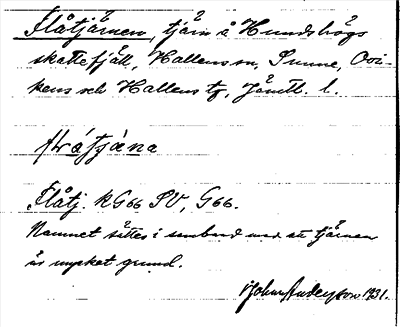 Flåtjärnen, tjärn å Hundshögs
skattefjäll, Hallens sn, Sunne, Ovi-
kens och Hallens tg, Jämtl. l.
flåtjána
Flåtj. kG66 SV, G66.
Namnet sättes i samband med att tjärnen
är mycket grund.
John Anderson 1931.